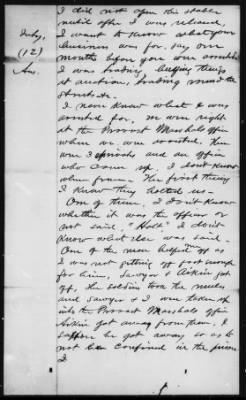 I did not open this stable
until after I was released,
Inty, I want to know what your
(12) business was for, say one
month before you were arrested
Ans. I was trading, buying things
at auction, trading round the
streets &c.
I never knew what I was
arrested for, we were right
at the Provost Marshals office
when we were arrested. there
were 3 and an officer
who came up, I don't know
where from. The first thing
I knew they halted us
One of them, I don't know
whether it was the officer or
not said, "Halt" I don't
know what else was said.
One of the men helped me as
I was not getting off fast enough
for him, Sawyer & Aikin got
off, the soldiers took the mules
and Sawyer & I were taken up
into the Provost Marshals office
Aikin got away from them, I
suppose he got away so as to
not be confined in the prison
I